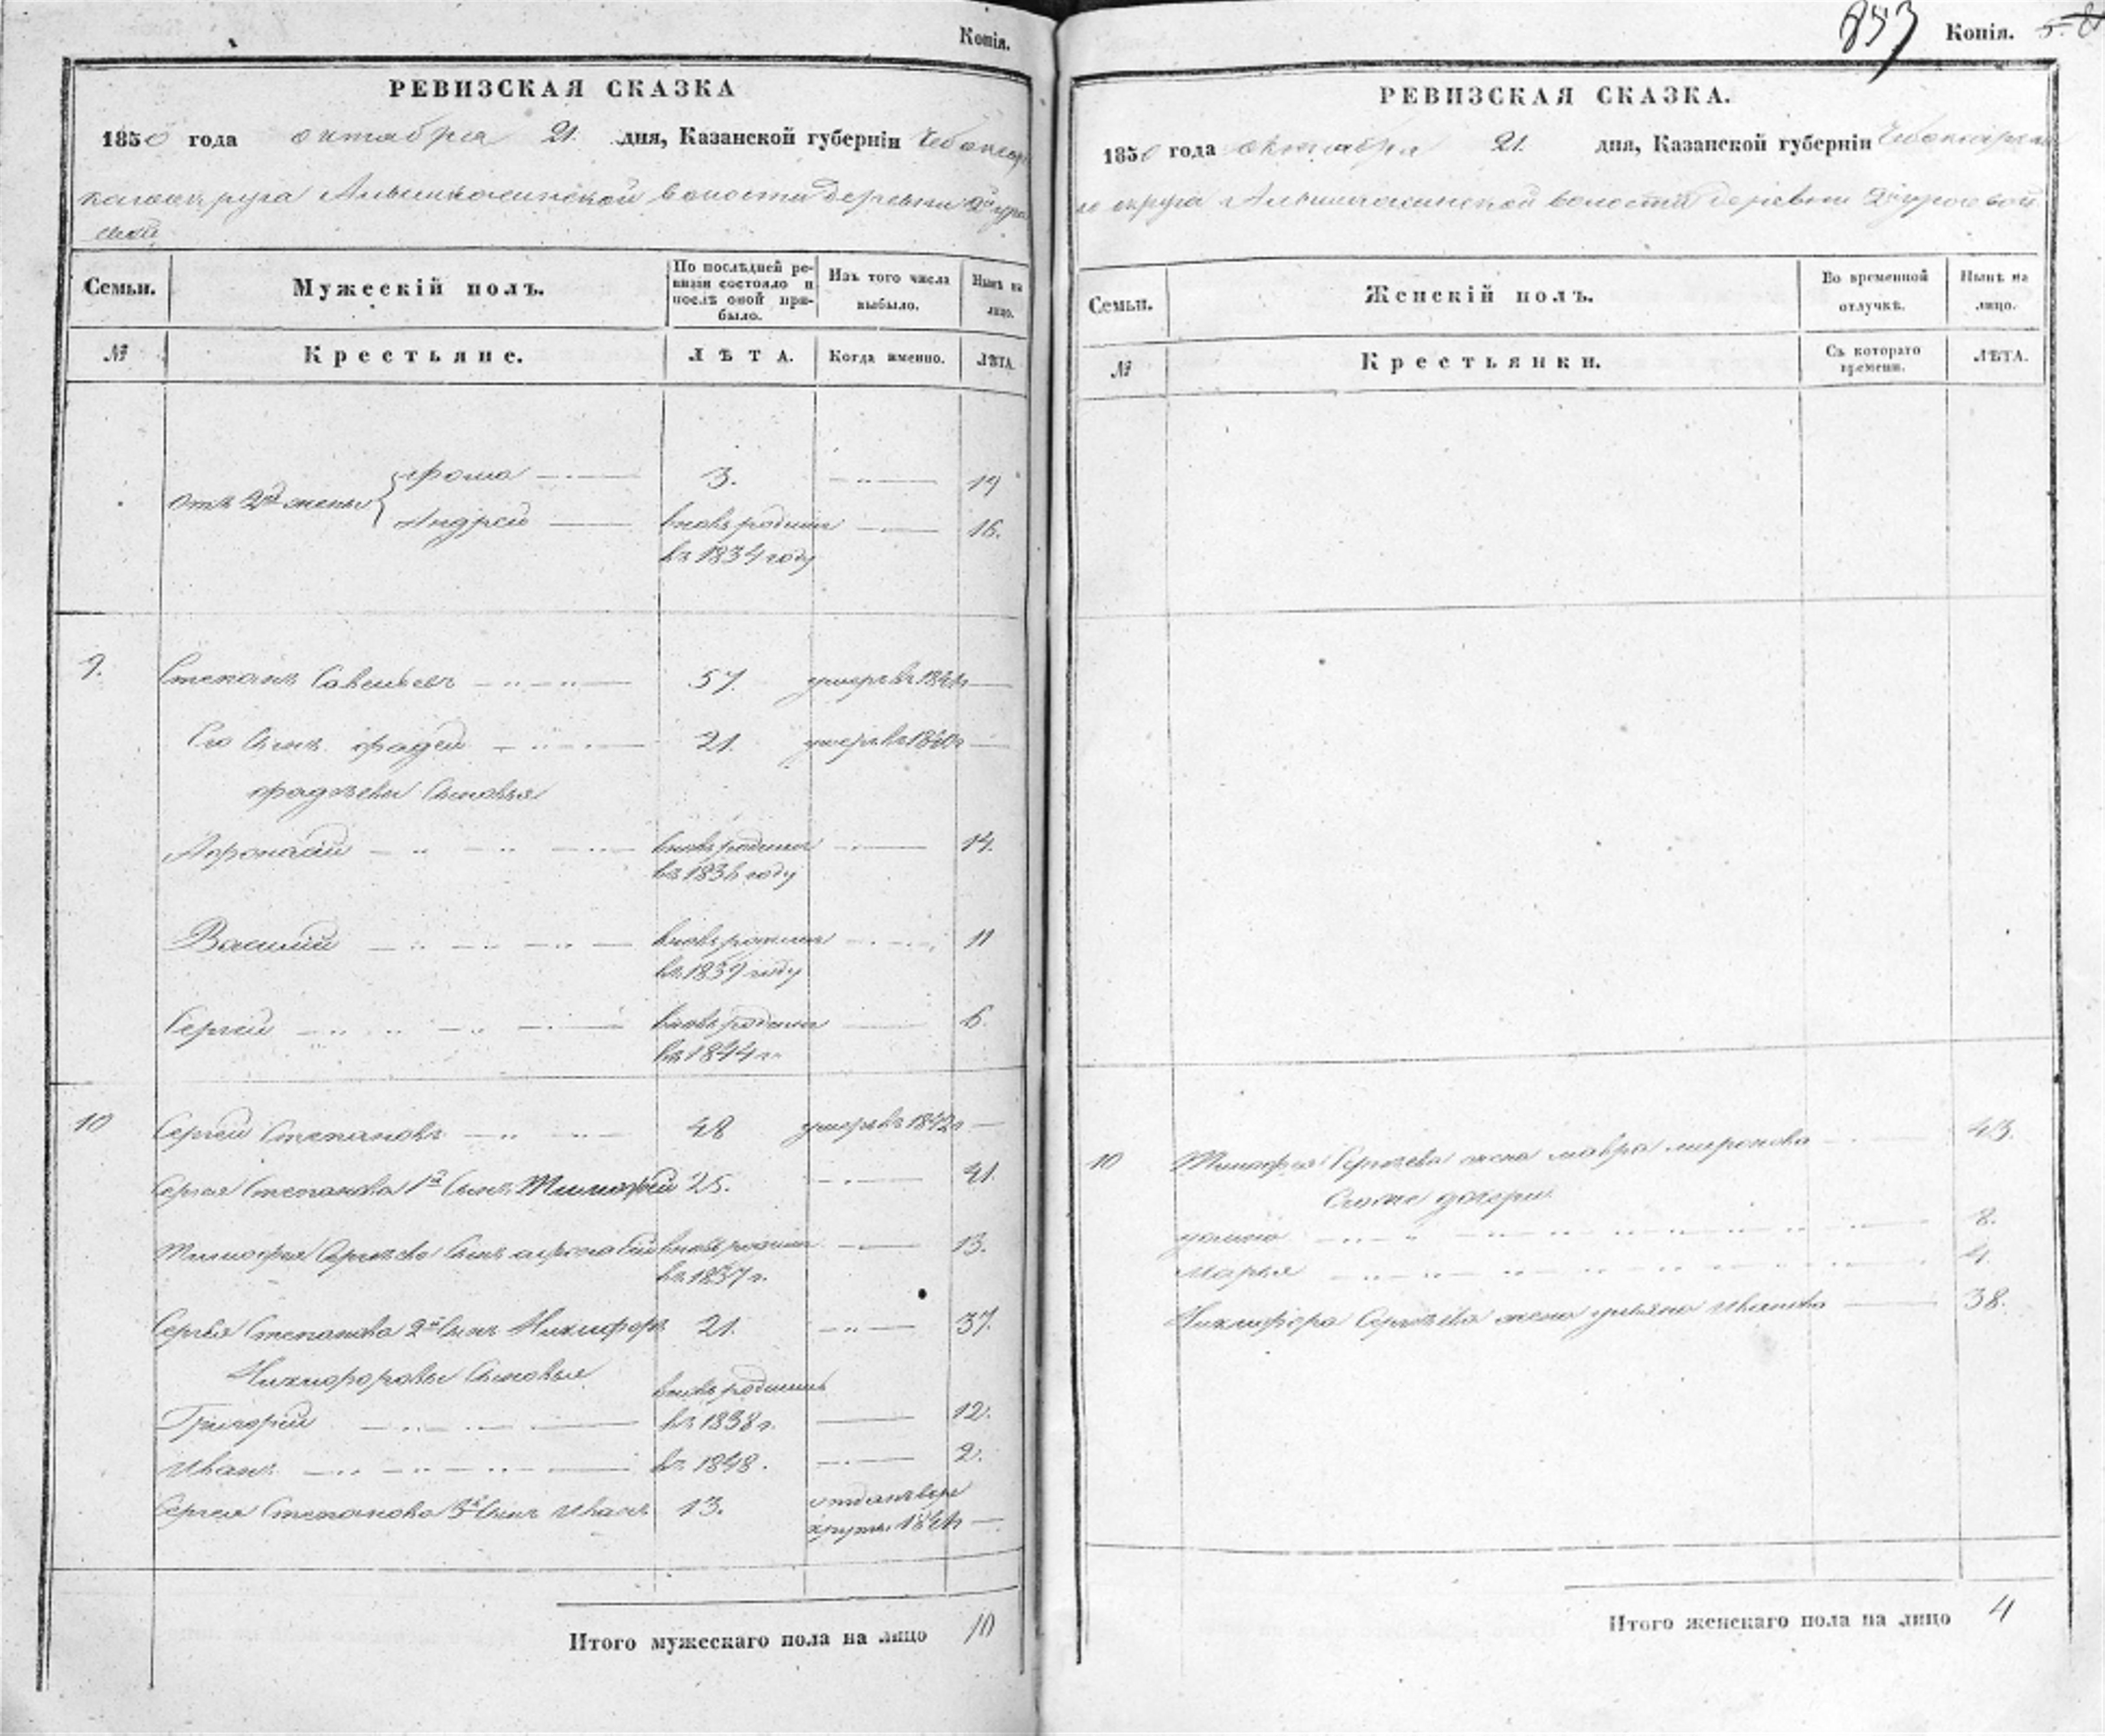 Копія.
РЕВИЗСКАЯ СКАЗКА
1850 года октября 21. дня, Казанской губерніи Чебоксар
скаго округа волости деревни
Семьи.
Мужескій полъ.
По послѣдней ре-
визіи состояло и
послѣ оной при-
было.
Изъ того числа
выбыло.
Нынѣ на
лицо.
№
Крестьяне.
ЛѢТА.
Когда именно.
ЛѢТА.
отъ 2й жены
3. 19
Андрей вновь родился 16.
въ 1834 году
9. Степанъ Савельевъ 57. умеръ въ
Его сынъ Фадей 21. умеръ въ
Фадѣевы сыновья
вновь родился 14.
въ 1836 году
Василій вновь родился 11
въ 1839 году
Сергей вновь родился 6.
въ 1844 г.
10 Сергей Степановъ 48 умеръ въ 1842 г
Сергея Степанова 1й сынъ Тимофей 25. 41.
Тимофея Сергѣева сынъ вновь родился 13.
въ 1837 г.
Сергѣя Степанова 2й сынъ Никифоръ 21. 37.
Никифоровы сыновья вновь родились
Григорій въ 1838 г. 12.
Иванъ въ 1848. 2.
Сергея Степанова 3й сынъ Иванъ 13. отданъ в ре
круты
Итого мужескаго пола на лицо 10
853 Копія.
РЕВИЗСКАЯ СКАЗКА.
1850 года октября 21. дня, Казанской губерніи Чебоксарска
го округа волости деревни
Семьи.
Женскій полъ.
Во временной
отлучкѣ.
Нынѣ на
лицо.
№
Крестьянки.
Съ котораго
времени.
ЛѢТА.
10 Тимофея Сергѣева жена Мавра Миронова 43.
дочери
8.
Марья 4.
Никифора Сергѣева жена Ульяна Иванова 38.
Итого женскаго пола на лицо 4